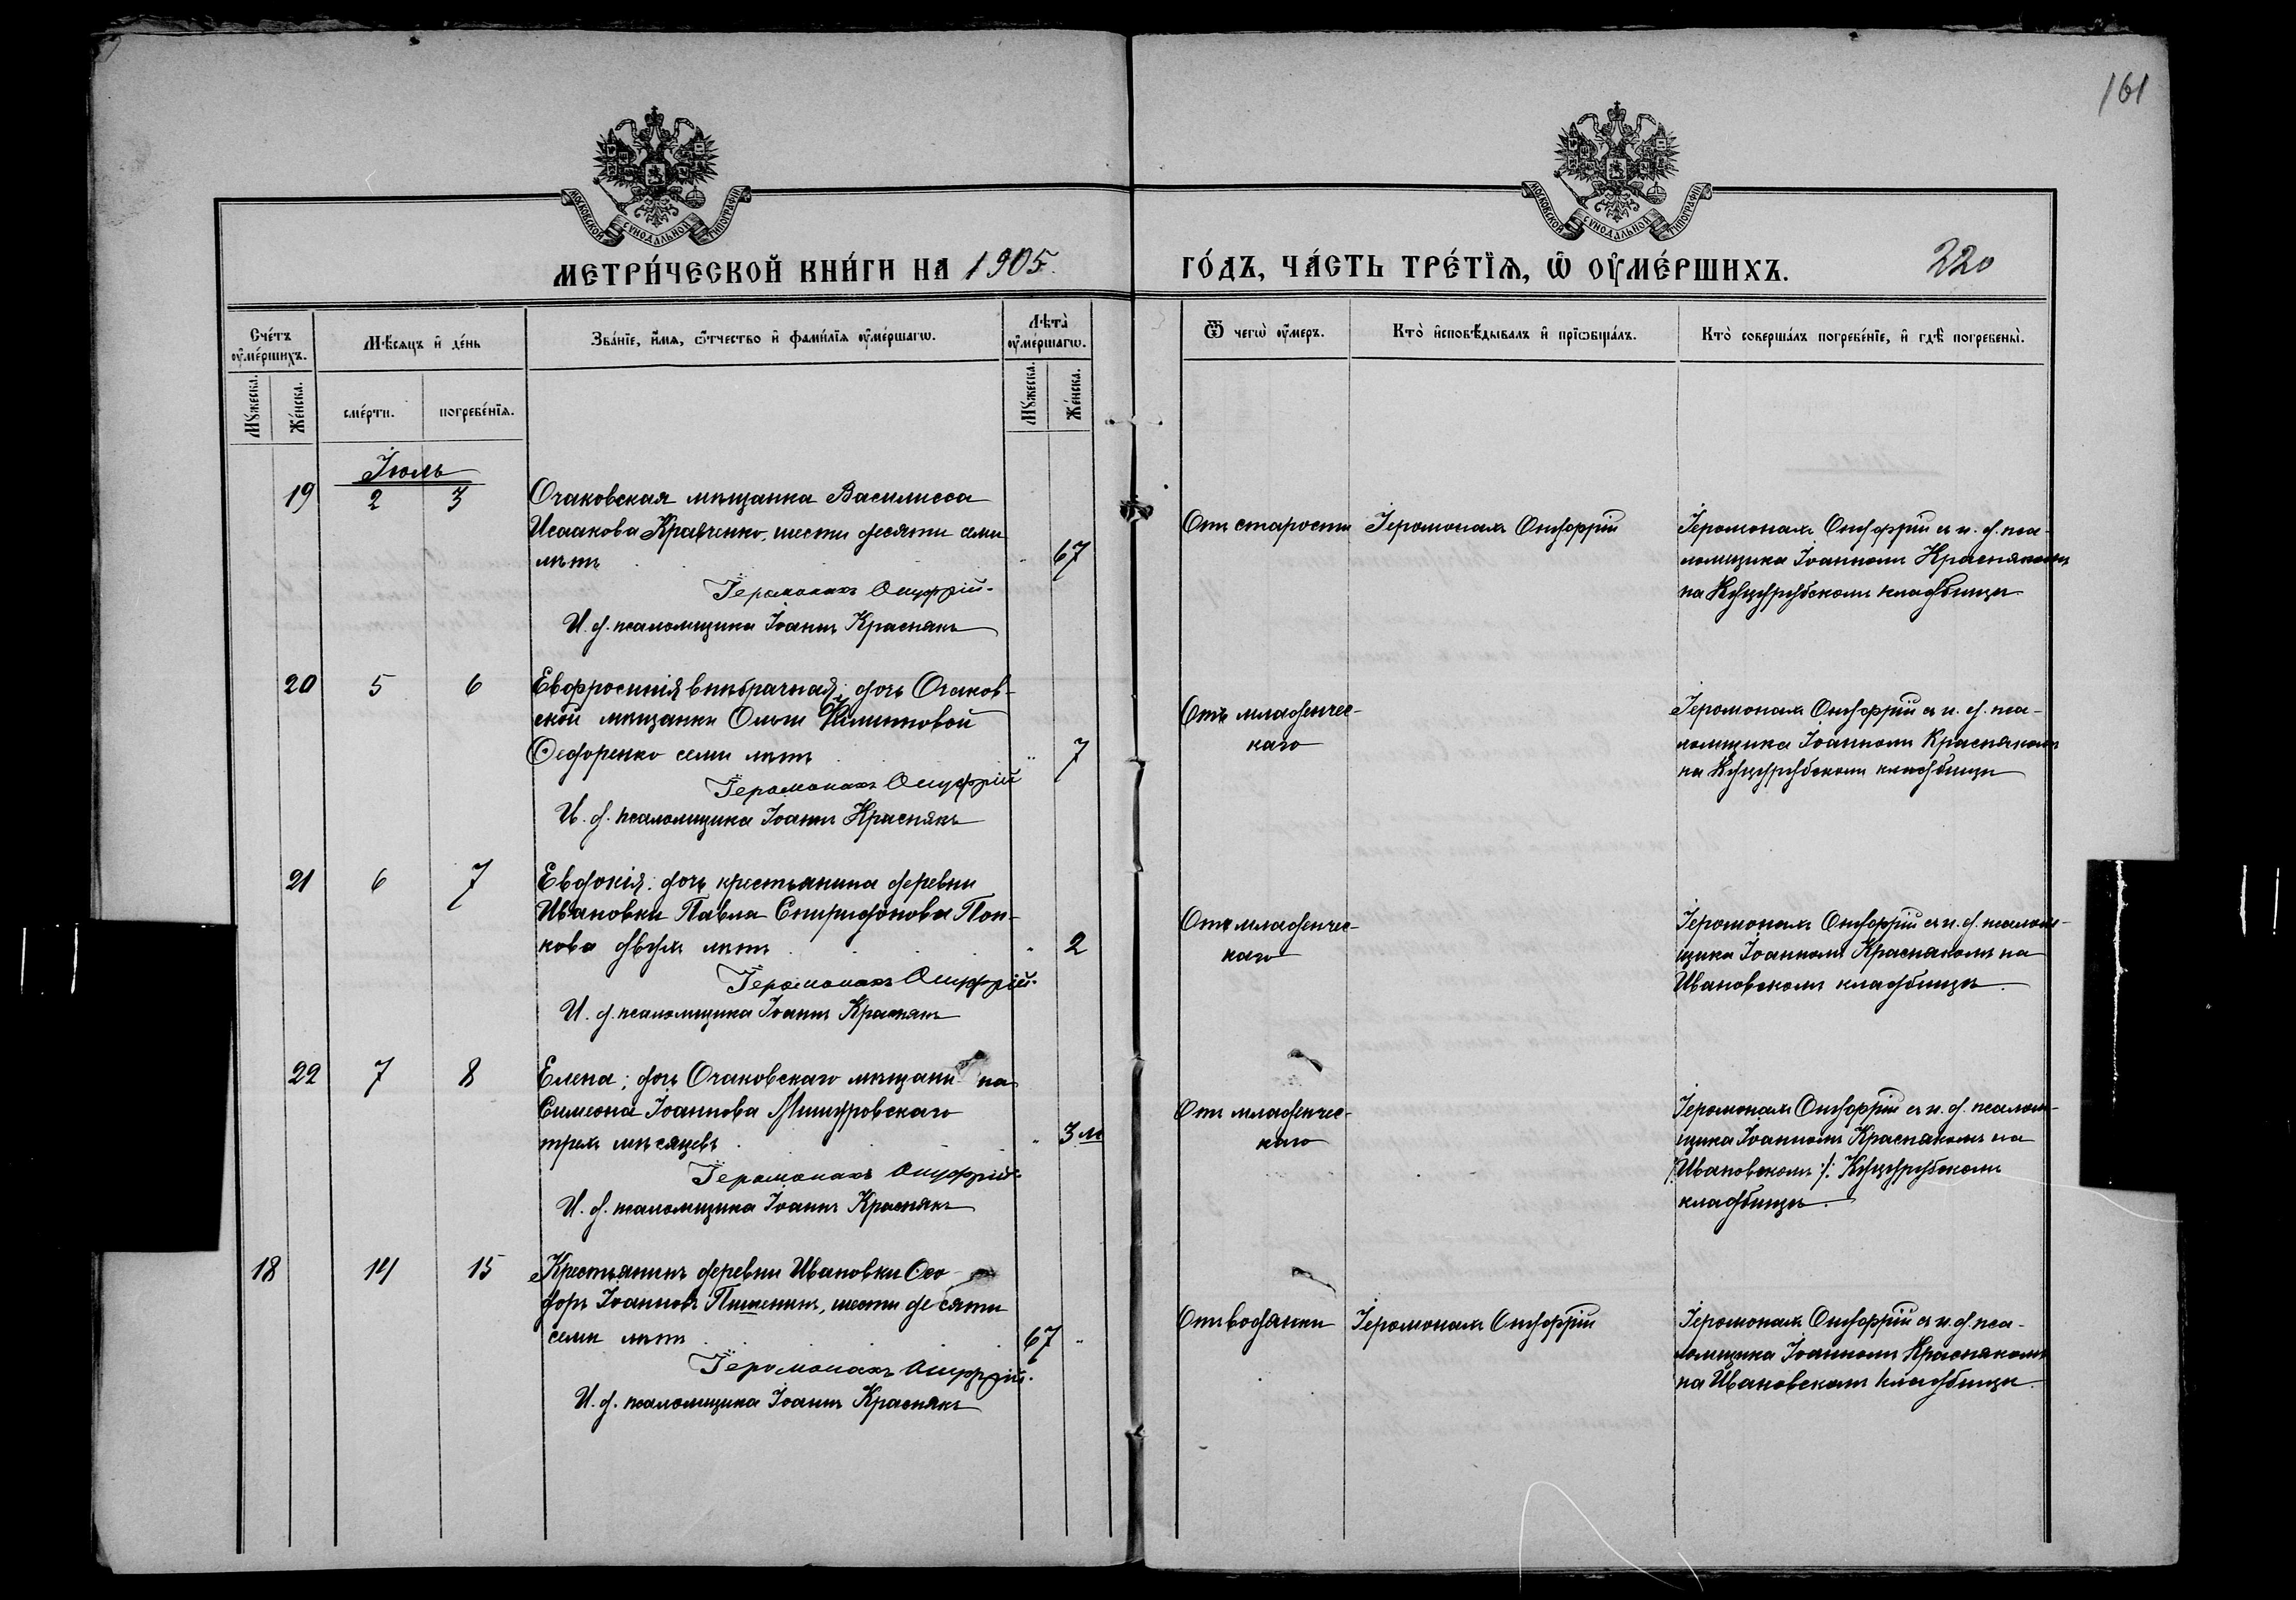 161
МОСКОВСКОЙ СУНОДАЛЬНОЙ ТИПОГРАФІИ
МОСКОВСКОЙ СУНОДАЛЬНОЙ ТИПОГРАФІИ
МЕТРИ́ЧЕСКОЙ КНИ́ГИ НА 1905.
ГО́ДЪ, ЧА́СТЬ ТРЕ́ТЇѦ, Ѿ ОУ҆МЕ́РШИХЪ.
220
Сче́тъ оу҆ме́ршихъ.
Мꙋ́жеска.
Же́нска.
Мѣ́сѧцъ и҆ де́нь
сме́рти.
погребе́нїѧ.
Зва́нїе, и҆́мѧ, ѻ҆́тчество и҆ фами́лїѧ оу҆ме́ршагѡ.
Лѣ́та оу҆ме́ршагѡ.
Мꙋ́жеска.
Же́нска.
Ѿ чегѡ̀ оу҆́меръ.
Кто̀ и҆сповѣ́дывалъ и҆ прїѡбща́лъ.
Кто̀ соверша́лъ погребе́нїе, и҆ гдѣ̀ погребены̀.
Іюль
19
2
3
Очаковская мѣщанка Василисса
Исаакова Кравченко, шести десяти семи
лѣтъ
67
Іеромонахъ Онуфрій.
И. д. псаломщика Іоаннъ Краснякъ
Отъ старости
Іеромонахъ Онуфрій
Іеромонахъ Онуфрій съ и. д. пса-
ломщика Іоанномъ Краснякомъ
на Куцурубскомъ кладбищѣ
20
5
6
Евфросинія внѣбрачная; дочь Очаков-
ской мѣщанки Ольги Филипповой
Ѳедоренко семи лѣтъ
7
Іеромонахъ Онуфрій
И. д. псаломщика Іоаннъ Краснякъ
Отъ младенчес-
каго
Іеромонахъ Онуфрій съ и. д. пса-
ломщика Іоанномъ Краснякомъ
на Куцурубскомъ кладбищѣ
21
6
7
Евдокія; дочь крестьянина деревни
Ивановки Павла Спиридонова Поп-
кова двухъ лѣтъ
2
Іеромонахъ Онуфрій.
И. д. псаломщика Іоаннъ Краснякъ
Отъ младенчес-
каго
Іеромонахъ Онуфрій съ и. д. псалом-
щика Іоанномъ Краснякомъ на
Ивановскомъ кладбищѣ.
22
7
8
Елена; дочь Очаковскаго мѣщани на
Симеона Іоаннова Мишуровскаго
трехъ мѣсяцевъ
3 м
Іеромонахъ Онуфрій.
И. д. псаломщика Іоаннъ Краснякъ
Отъ младенчес-
каго
Іеромонахъ Онуфрій съ и. д. псалом-
щика Іоанномъ Краснякомъ на
/:Ивановскомъ:/ Куцурубскомъ
кладбищѣ.
18
14
15
Крестьянинъ деревни Ивановки Ѳео-
доръ Іоанновъ Пишенинъ, шести десяти
семи лѣтъ
67
Іеромонахъ Онуфрій.
И. д. псаломщика Іоаннъ Краснякъ
Отъ водянки
Іеромонахъ Онуфрій
Іеромонахъ Онуфрій съ и. д. пса-
ломщика Іоанномъ Краснякомъ
на Ивановскомъ кладбищѣ.